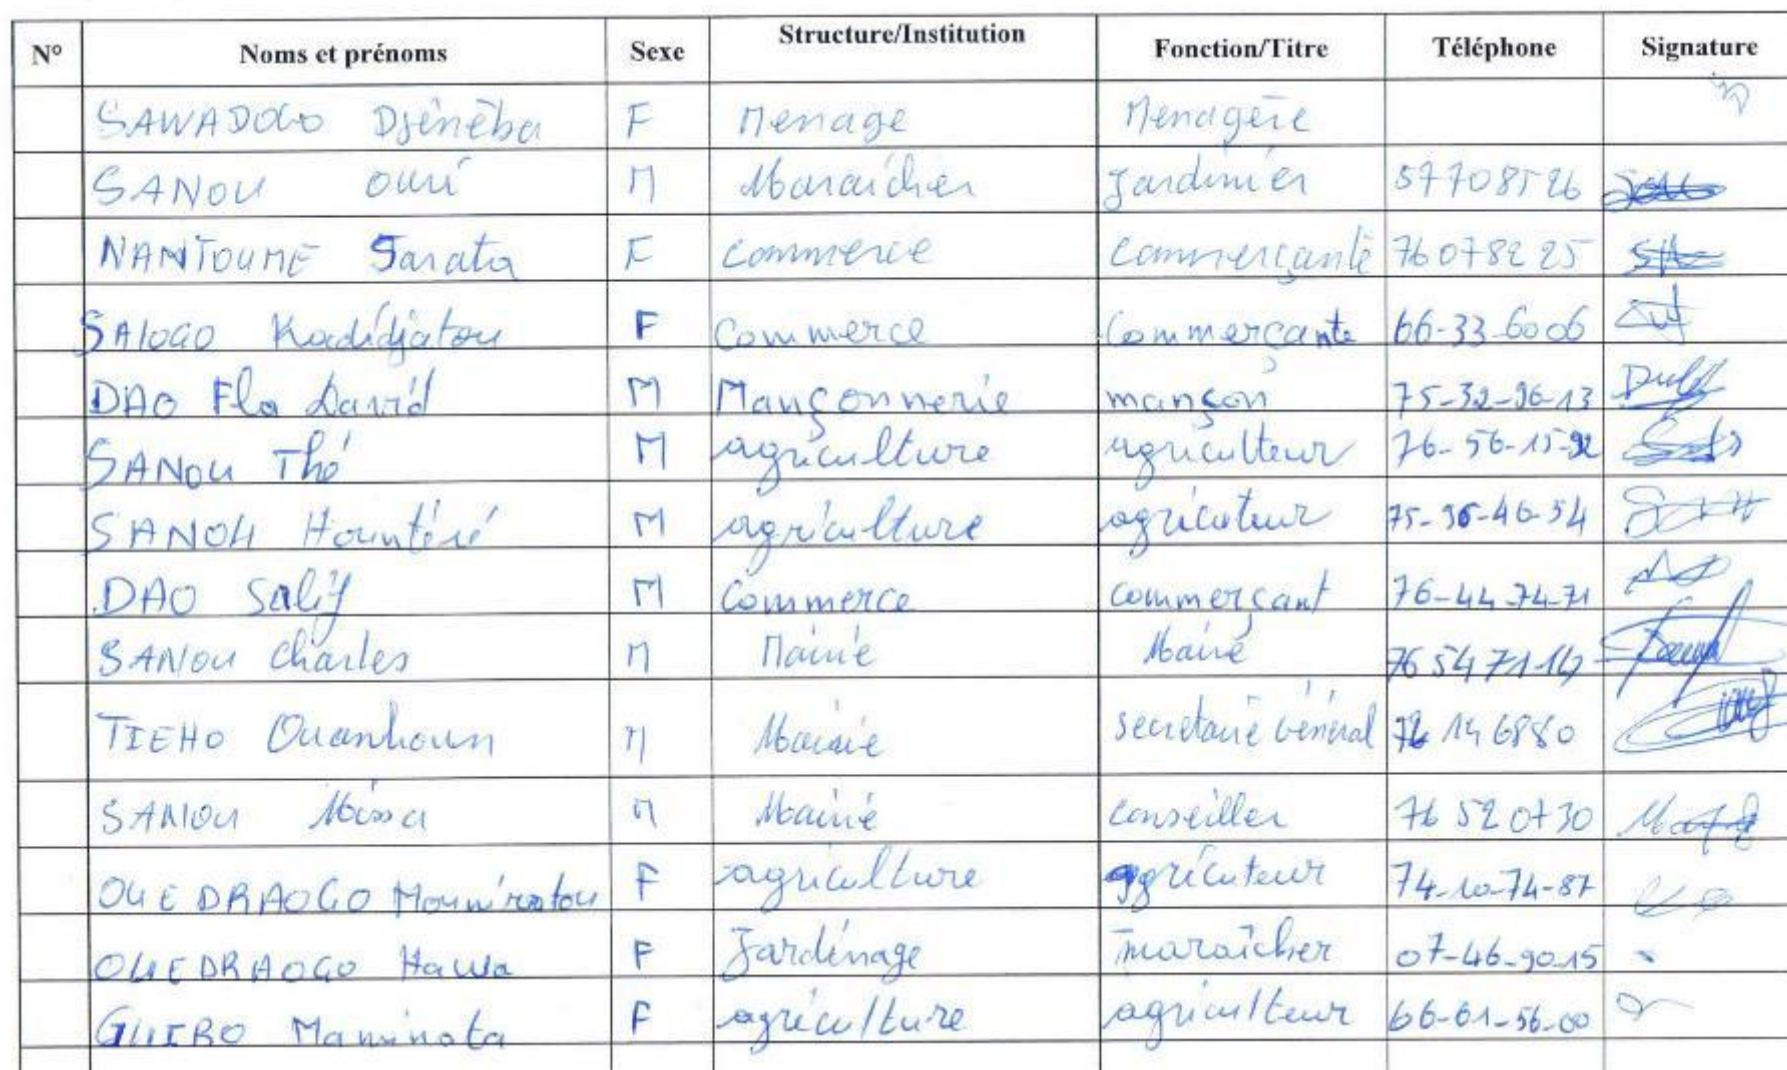 N° Noms et prénoms Sexe Structure/Institution Fonction/Titre Téléphone Signature
SAWADOGO Djénèba F Menage Menagère
SANOU Ouri M Maraicher Jardinier 57708526
NAMTOUME Sarata F Commerce Commerçante 76078225
SALOGO Kadidjatou F Commerce Commerçante 66-33-6006
DAO Flo David M Mançonnerie mançon 75-32-96-13
SANOU Thé M agriculture agriculteur 76-56-15-92
SANOU Hountéré M agriculture agricuteur 75-36-46-54
DAO Salif M Commerce commerçant 76-44-74-71
SANOU Charles M Mairie Maire 76 54 71 14
TIEHO Ouanhoun M Mairie Secretaire Général 76 14 6880
SANOU Moussa M Mairie Conseiller 76 52 07 30
OUEDRAOGO Mouniratou F agriculture agricuteur 74-10-74-87
OUEDRAOGO Hawa F Jardinage maraîcher 07-46-90-15
GUIRO Maminata F agriculture agriculteur 66-61-56-00